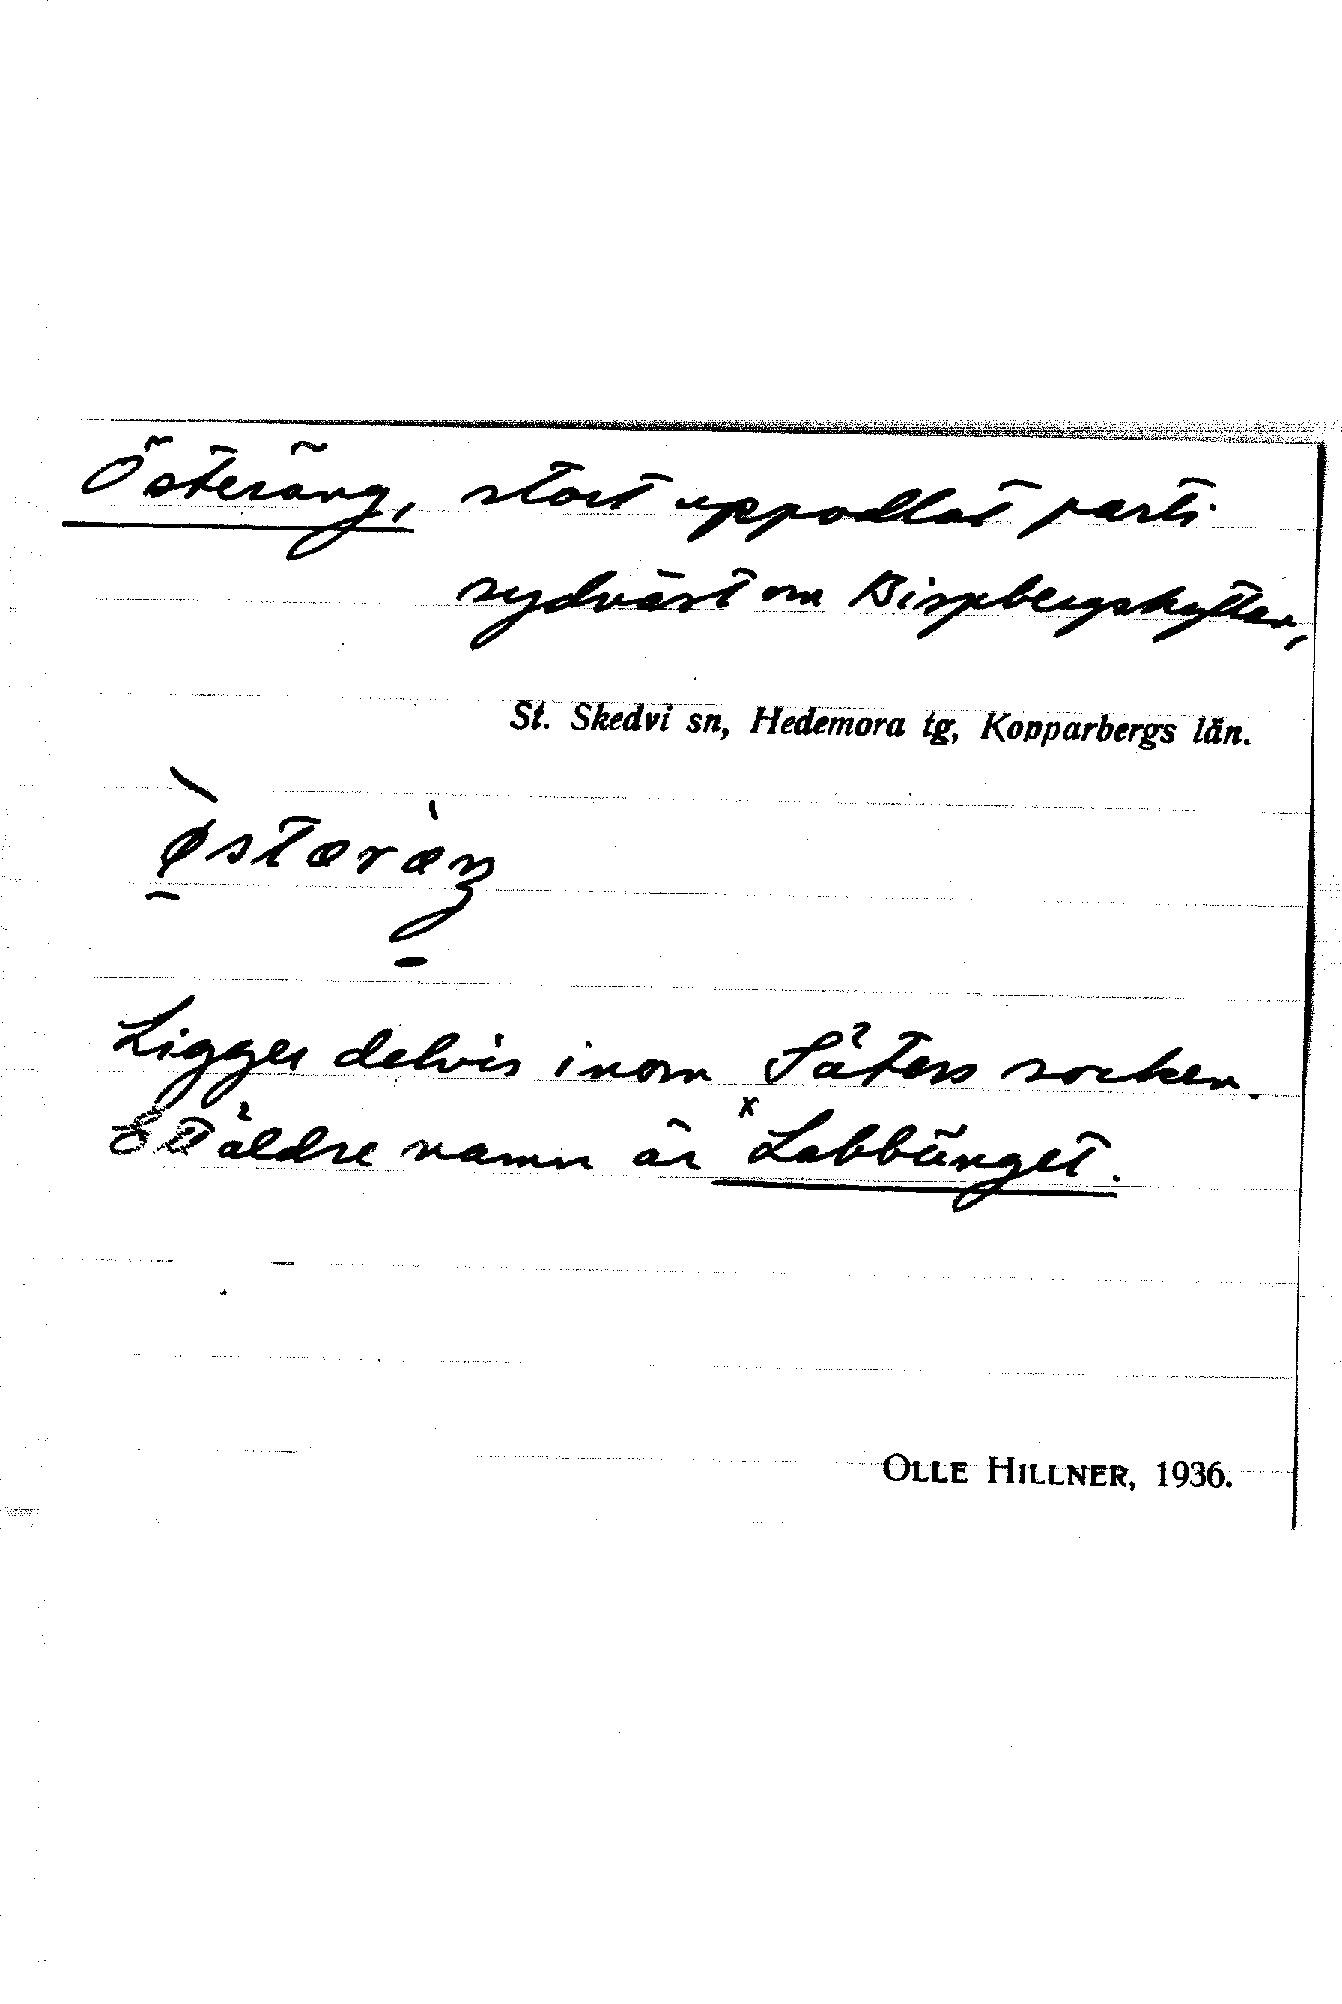 Österäng, stort uppodlat parti
sydväst om Bispbergshyttan,
St. Skedvi sn, Hedemora tg, Kopparbergs län.
østæræŋ
Ligger delvis inom Säters socken.
Ett äldre namn är ˣLabbänget.
OLLE HILLNER, 1936.